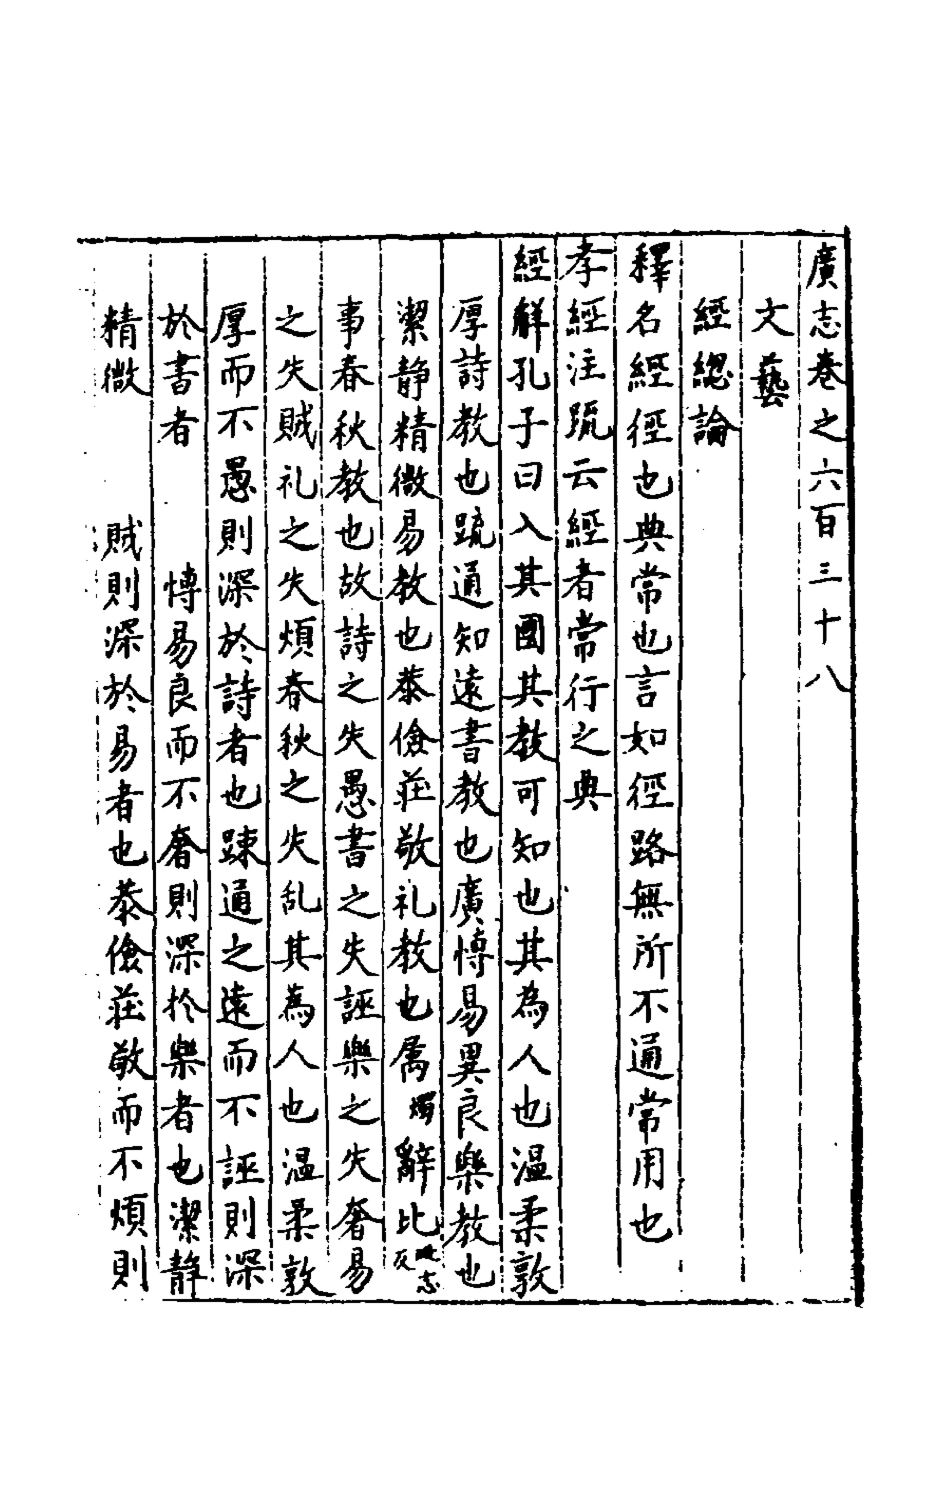 廣志卷之六百三十八
文藝
經緫論
釋名經徑也典常也言如徑路無所不通常用也
孝經注䟽云經者常行之典
經解孔子曰入其國其教可知也其為人也温柔敦
厚詩教也䟽通知遠書教也廣愽易異良樂教也
潔静精微易教也恭儉莊敬礼教也属辭比
事春秋教也故詩之失愚書之失誣樂之失奢易
之失賊礼之失煩春秋之失乱其為人也温柔敦
厚而不愚則深於詩者也踈通之遠而不誣則深
於書者 愽易良而不奢則深於樂者也潔静
精微 賊則深於易者也恭儉莊敬而不煩則